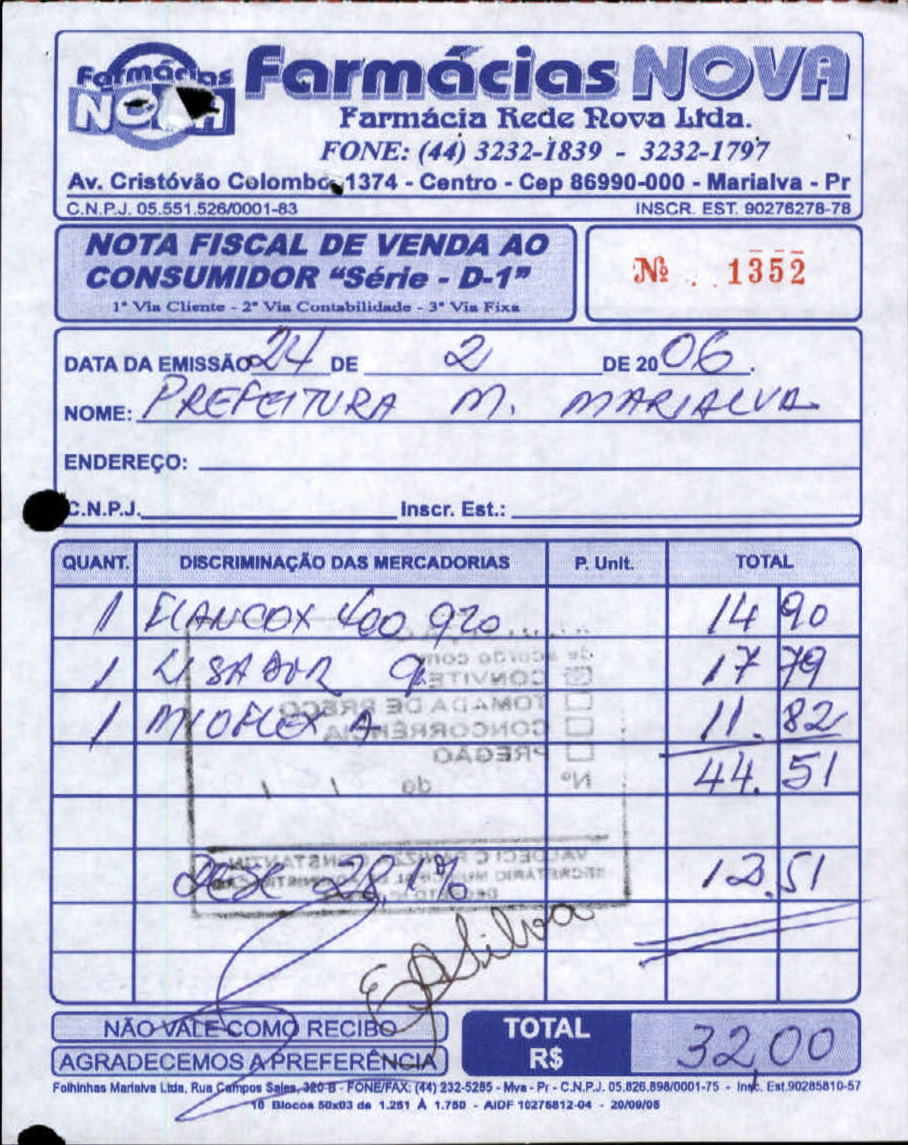 Farmácias NOVA
Farmácias NOVA
Farmácia Rede Nova Ltda.
FONE: (44) 3232-1839 - 3232-1797
Av. Cristóvão Colombo, 1374 - Centro - Cep 86990-000 - Marialva - Pr
C.N.P.J. 05.551.526/0001-83 INSCR. EST. 90276278-78
NOTA FISCAL DE VENDA AO
CONSUMIDOR "Série - D-1"
1ª Via Cliente - 2ª Via Contabilidade - 3ª Via Fixa
Nº 1352
DATA DA EMISSÃO 24 DE 2 DE 20 06.
NOME: PREFEITURA M. MARIALVA
ENDEREÇO:
C.N.P.J. Inscr. Est.:
QUANT. DISCRIMINAÇÃO DAS MERCADORIAS P. Unit. TOTAL
1 FLANCOX 400 14 90
1 LISADOR 17 79
1 MIOFLEX A 11.82
44.51
DESC 28,1% 12,51
de acordo com
CONVITE
TOMADA DE PREÇO
CONCORRÊNCIA
PREGÃO
Nº do / /
EASilva
NÃO VALE COMO RECIBO
AGRADECEMOS A PREFERÊNCIA
TOTAL R$ 32,00
Folhinhas Marialva Ltda, Rua Campos Sales, 320-B - FONE/FAX: (44) 232-5285 - Mva - Pr - C.N.P.J. 05.826.898/0001-75 - Insc. Est.90285810-57
10 Blocos 50x03 de 1.251 À 1.750 - AIDF 10275812-04 - 20/09/05